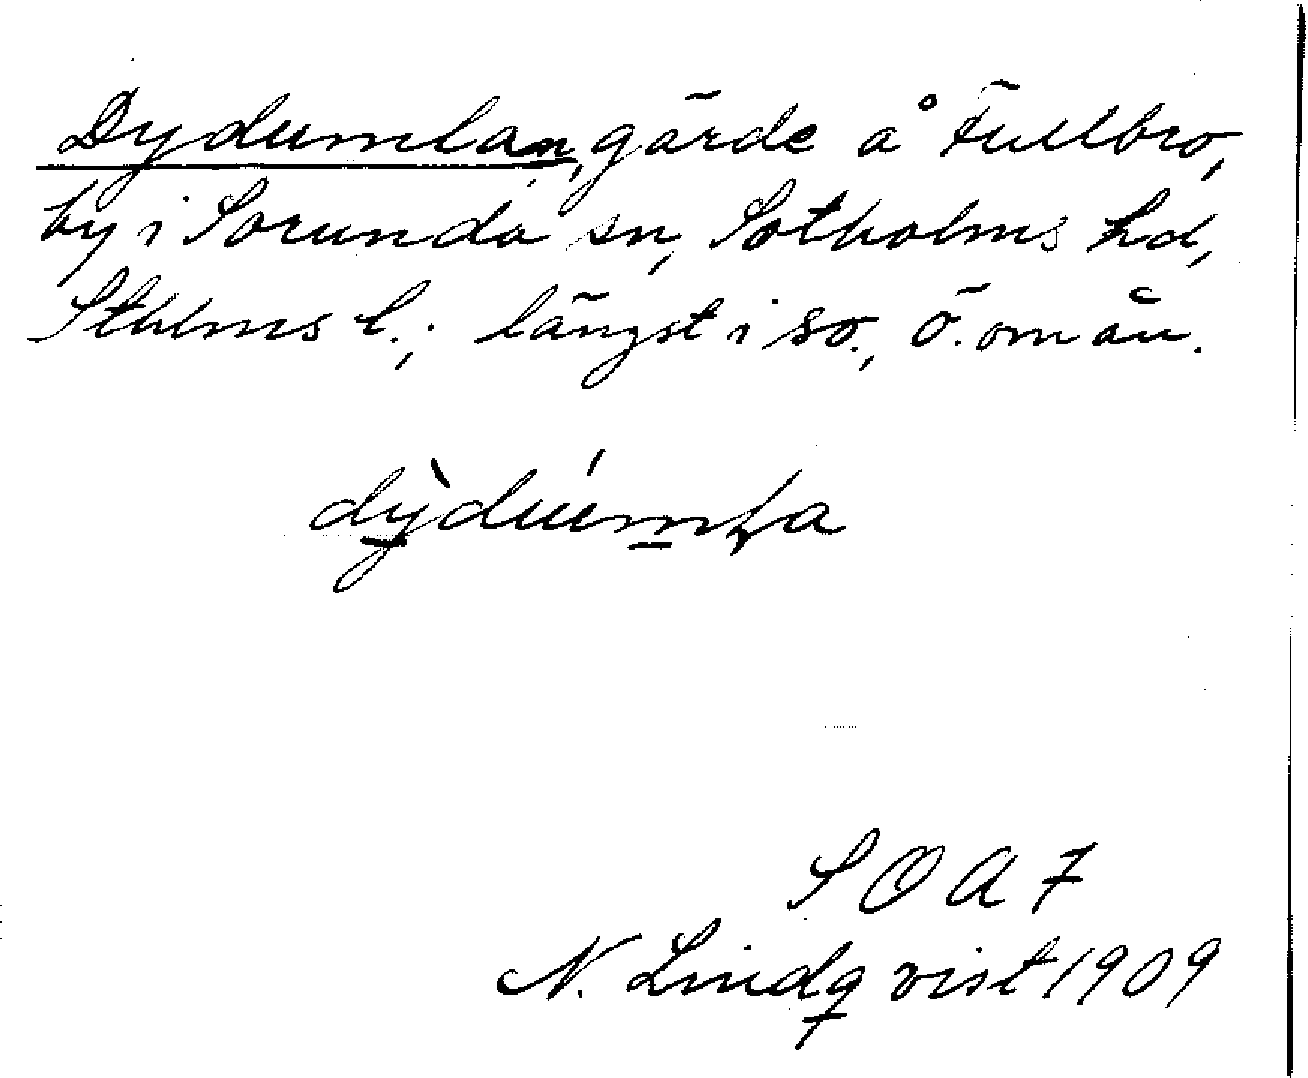 Dydumlan, gärde å Fullbro,
by i Sorunda sn, Sotholms hd,
Sthlms l.; längst i so., ö. om ån.
dỳ̠dúm̠ɫa
S O A F
N. Lindqvist 1909